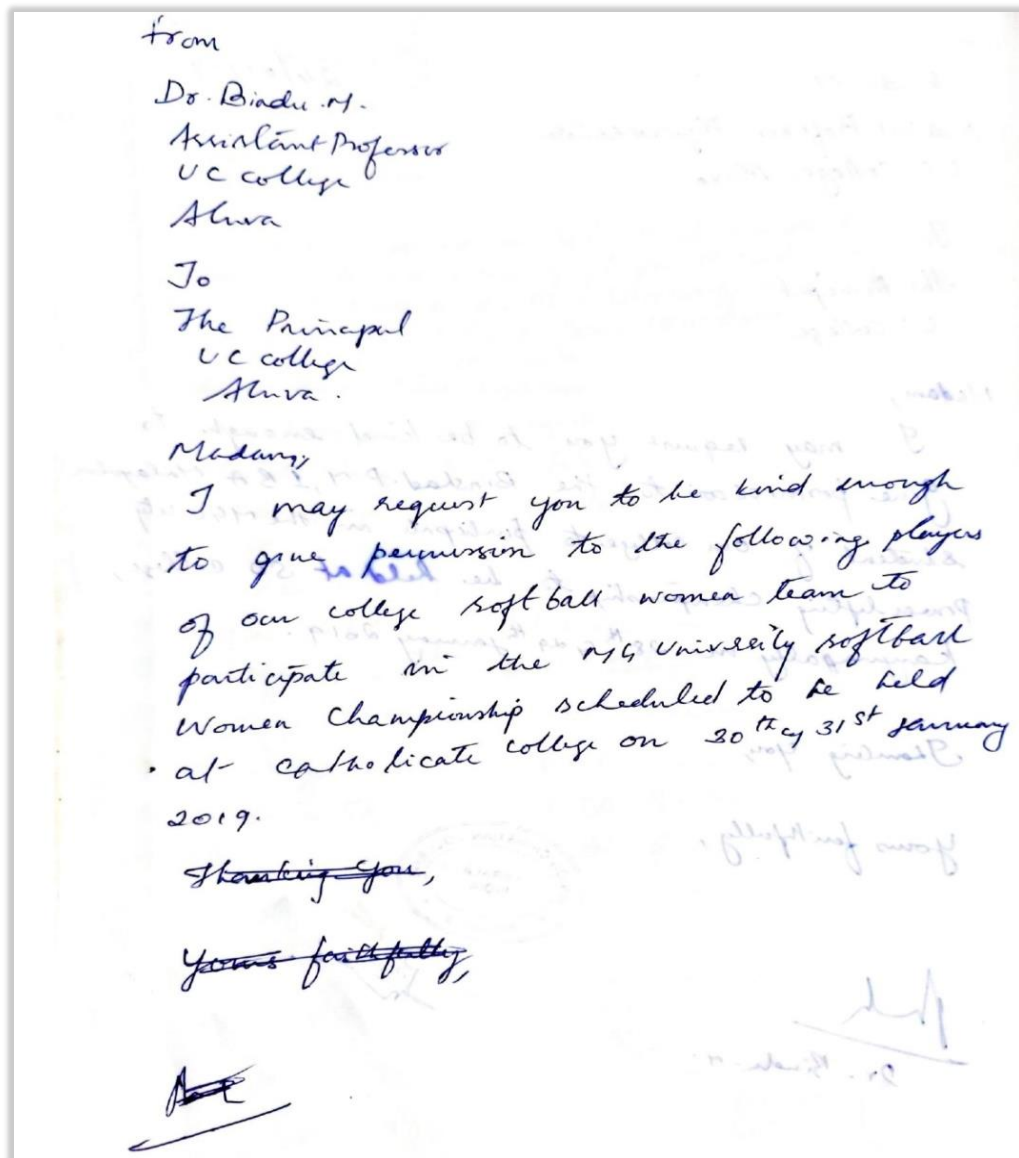 from
Dr. Bindu .M.
Assistant Professor
UC college
Aluva
To
The Principal
UC college
Aluva.
Madam,
I may request you to be kind enough
to give permission to the following players
of our college softball women team to
participate in the MG University softball
women championship scheduled to be held
at catholicate college on 30th & 31st January
2019.
Thanking you,
Yours faithfully,